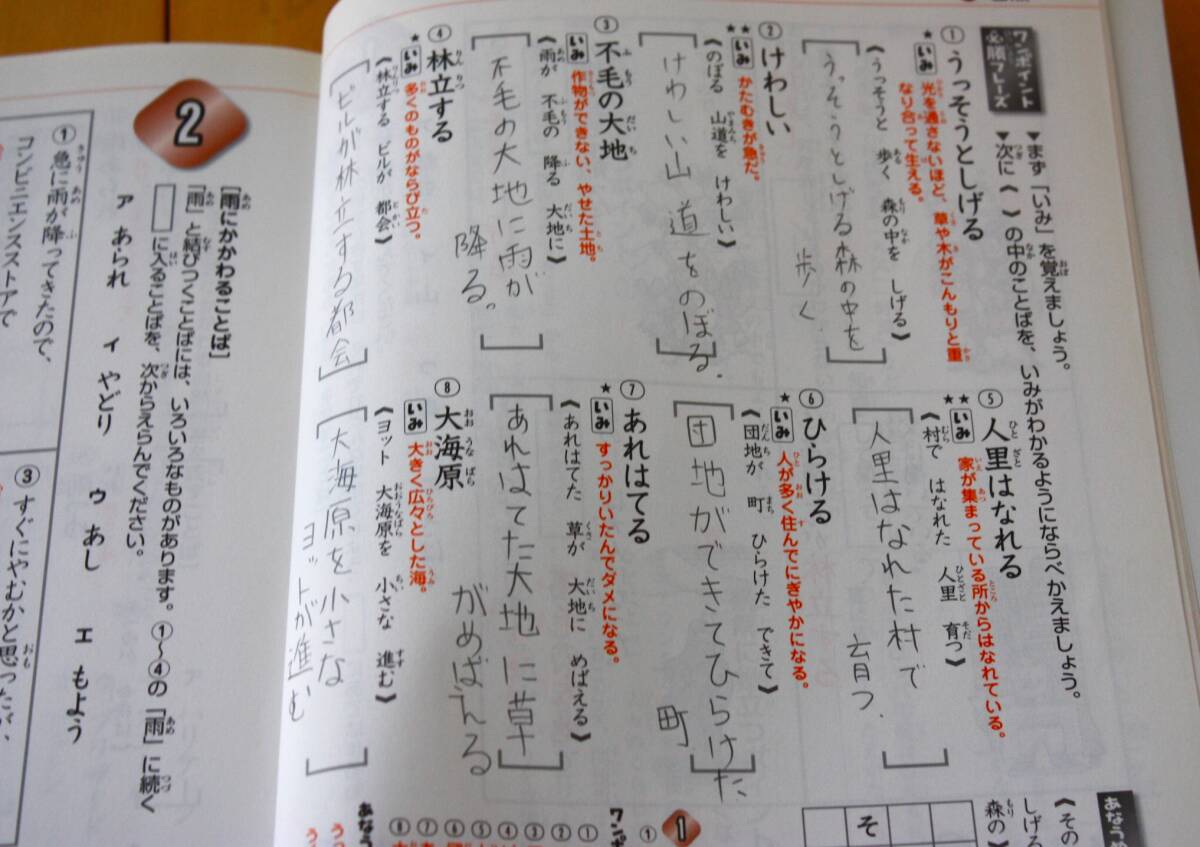 ワンポイント
必勝フレーズ
▼まず「いみ」を覚えましょう。
▼次に《 》の中のことばを、いみがわかるようにならべかえましょう。
① うっそうとしげる
★ いみ 光を通さないほど、草や木がこんもりと重
なり合って生える。
《うっそうと 歩く 森の中を しげる》
うっそうとしげる森の中を
歩く.
② けわしい
★★ いみ かたむきが急だ。
《のぼる 山道を けわしい》
けわしい山道をのぼる.
③ 不毛の大地
いみ 作物ができない、やせた土地。
《雨が 不毛の 降る 大地に》
不毛の大地に雨が
降る。
④ 林立する
★ いみ 多くのものがならび立つ。
《林立する ビルが 都会》
ビルが林立する都会
⑤ 人里はなれる
★★ いみ 家が集まっている所からはなれている。
《村で はなれた 人里 育つ》
人里はなれた村で
育つ.
⑥ ひらける
★ いみ 人が多く住んでにぎやかになる。
《団地が 町 ひらけた できて》
団地ができてひらけた
町
⑦ あれはてる
★ いみ すっかりいたんでダメになる。
《あれはてた 草が 大地に めばえる》
あれはてた大地に草
がめばえる
⑧ 大海原
いみ 大きく広々とした海。
《ヨット 大海原を 小さな 進む》
大海原を小さな
ヨットが進む
《その
しげる
森の
そ
1
ワンポ
①
①
②
③
④
⑤
⑥
⑦
⑧
あなう
2
[雨にかかわることば]
「雨」と結びつくことばには、いろいろなものがあります。①〜④の「雨」に続く
に入ることばを、次からえらんでください。
ア あられ ィ やどり ゥ あし エ もよう
① 急に雨が降ってきたので、
コンビニエンスストアで
③ すぐにやむかと思ったが、